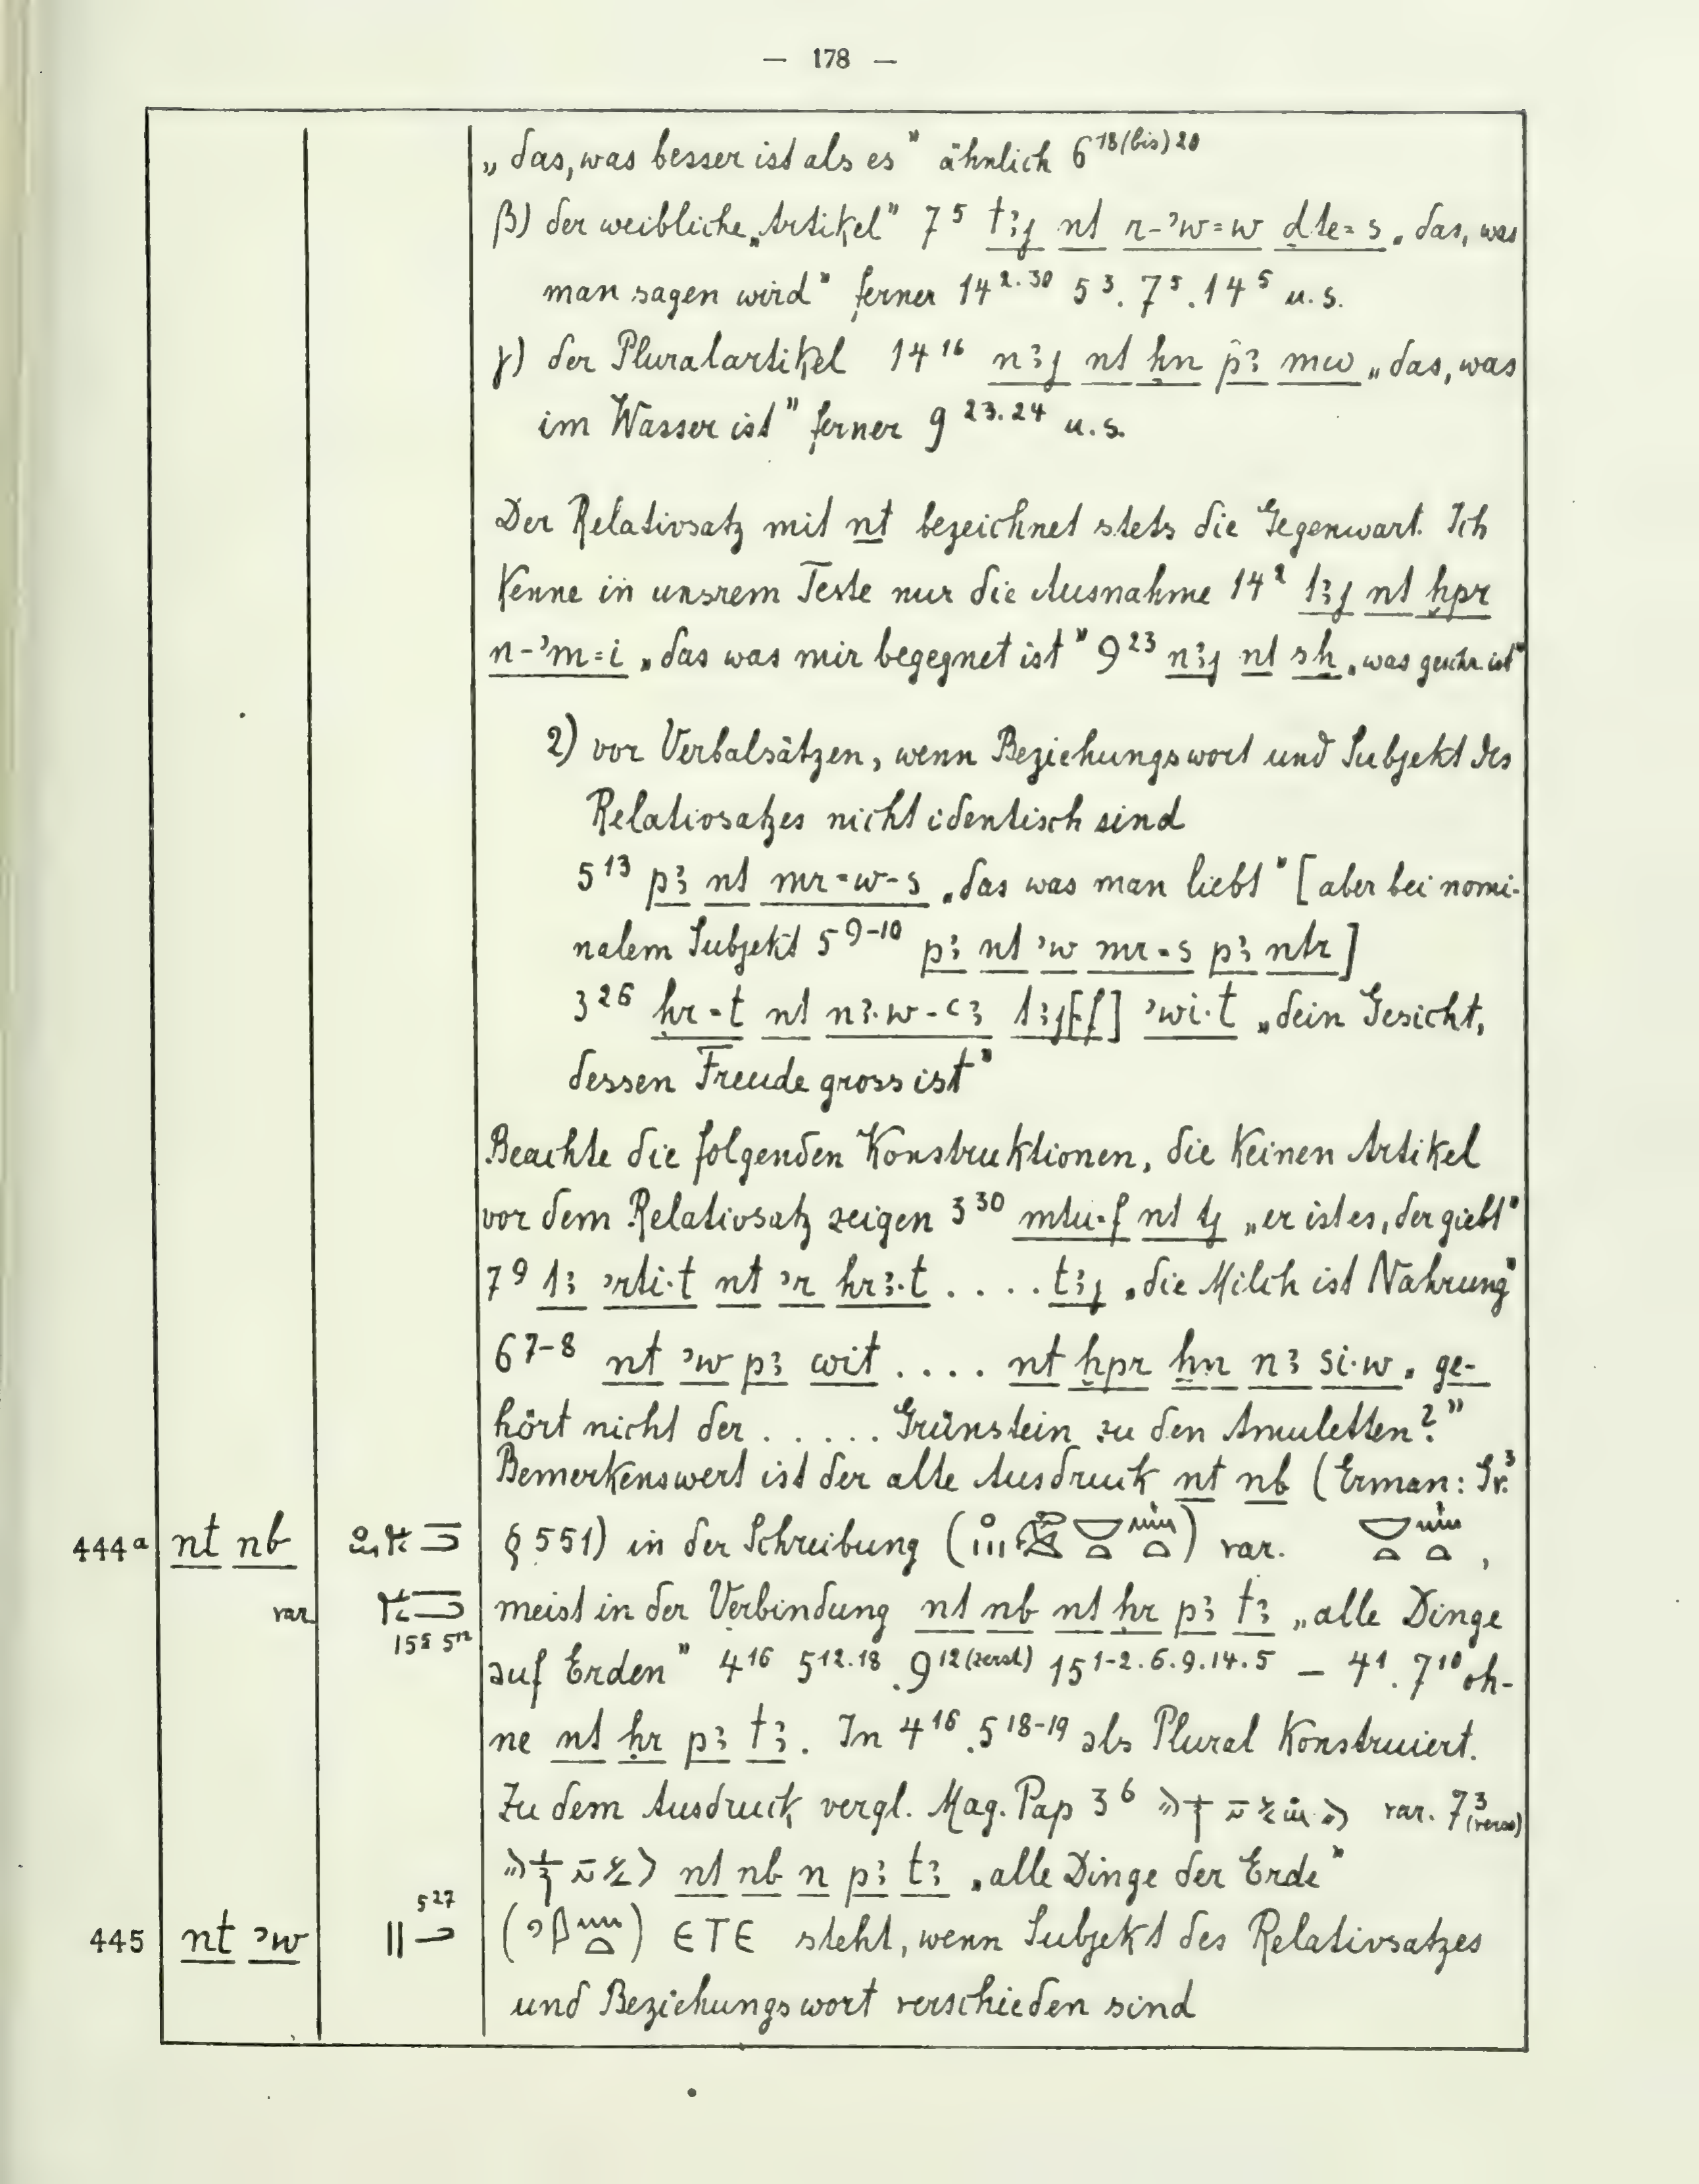 — 178 —
„das, was besser ist als es” ähnlich 6 18(bis)20
β) der weibliche „Artikel” 7 5 tꜣj nt r-ʾw=w ḏte=s „das, was
man sagen wird” ferner 14 2.30 5 3. 7 5. 14 5 u. s.
γ) der Pluralartikel 14 16 nꜣj nt ẖn pꜣ mw „das, was
im Wasser ist” ferner 9 23.24 u. s.
Der Relativsatz mit nt bezeichnet stets die Gegenwart. Ich
kenne in unsrem Texte nur die Ausnahme 14 2 tꜣj nt ḫpr
n-ʾm=i „das was mir begegnet ist” 9 23 nꜣj nt sẖ „was geschr. ist”
2) vor Verbalsätzen, wenn Beziehungswort und Subjekt des
Relativsatzes nicht identisch sind
5 13 pꜣ nt mr=w-s „das was man liebt” [aber bei nomi-
nalem Subjekt 5 9-10 pꜣ nt ʾw mr=s pꜣ ntr]
3 26 ḥr=t nt nꜣ.w-ꜥꜣ tꜣj[f] ʾwi.t „dein Gesicht,
dessen Freude gross ist”
Beachte die folgenden Konstruktionen, die keinen Artikel
vor dem Relativsatz zeigen 3 30 mtu.f nt tj „er ist es, der giebt”
7 9 tꜣ ʾrti.t nt ʾr hrꜣ.t .... tꜣj „die Milch ist Nahrung”
6 7-8 nt ʾw pꜣ wit .... nt ḫpr ẖn nꜣ si.w „ge-
hört nicht der ..... Grünstein zu den Amuletten?”
Bemerkenswert ist der alte Ausdruck nt nb (Erman: Gr.3
444a nt nb § 551) in der Schreibung ( ) var. ,
var. 15 8 5 12 meist in der Verbindung nt nb nt ḥr pꜣ tꜣ „alle Dinge
auf Erden” 4 16 5 12.18. 9 12(zerst.) 15 1-2.6.9.14.5 — 4 1. 7 10 oh-
ne nt ḥr pꜣ tꜣ. In 4 16. 5 18-19 als Plural konstruiert.
Zu dem Ausdruck vergl. Mag. Pap 3 6 var. 7 3 (verso)
nt nb n pꜣ tꜣ „alle Dinge der Erde”
445 nt ʾw 5 27 ( ) ⲉⲧⲉ steht, wenn Subjekt des Relativsatzes
und Beziehungswort verschieden sind